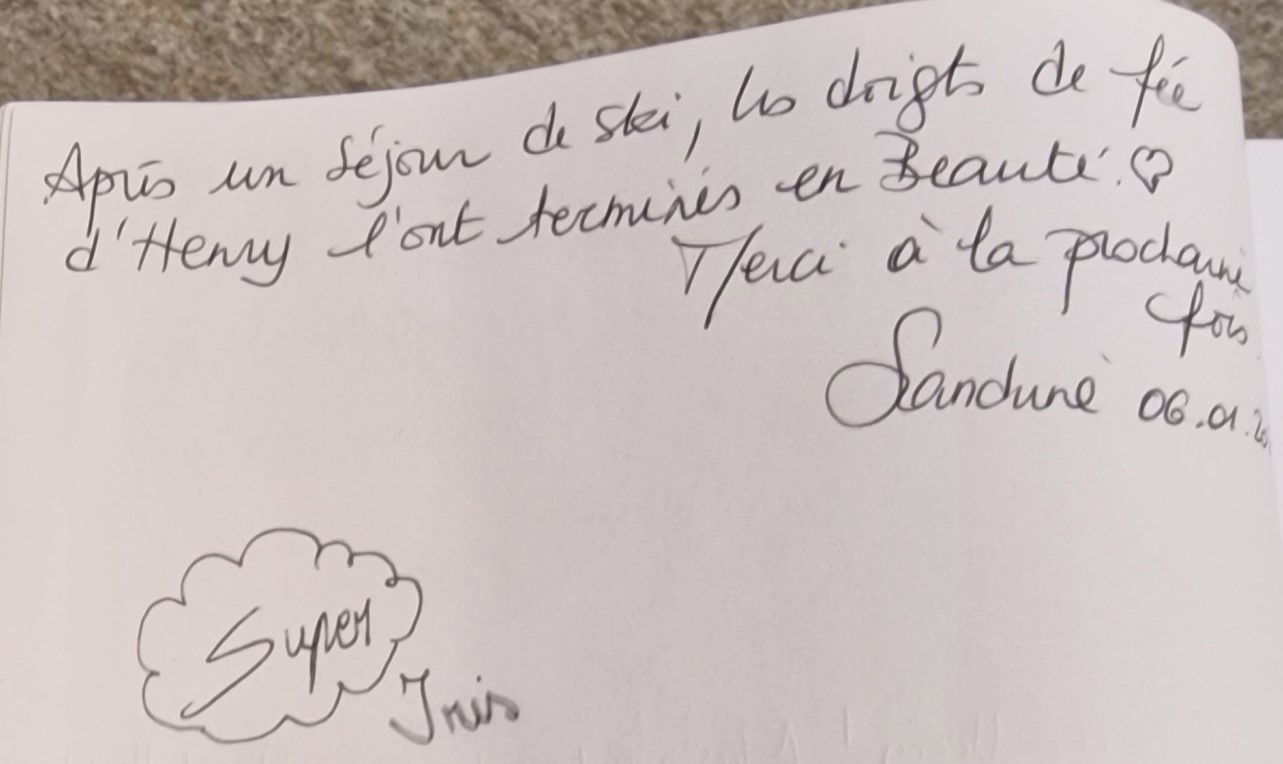 Après un séjour de ski, les doigts de fée
d'Henry l'ont terminés en Beauté. ♡
Merci à la prochaine
fois
Sandrine 06.01.2
Super
Inis